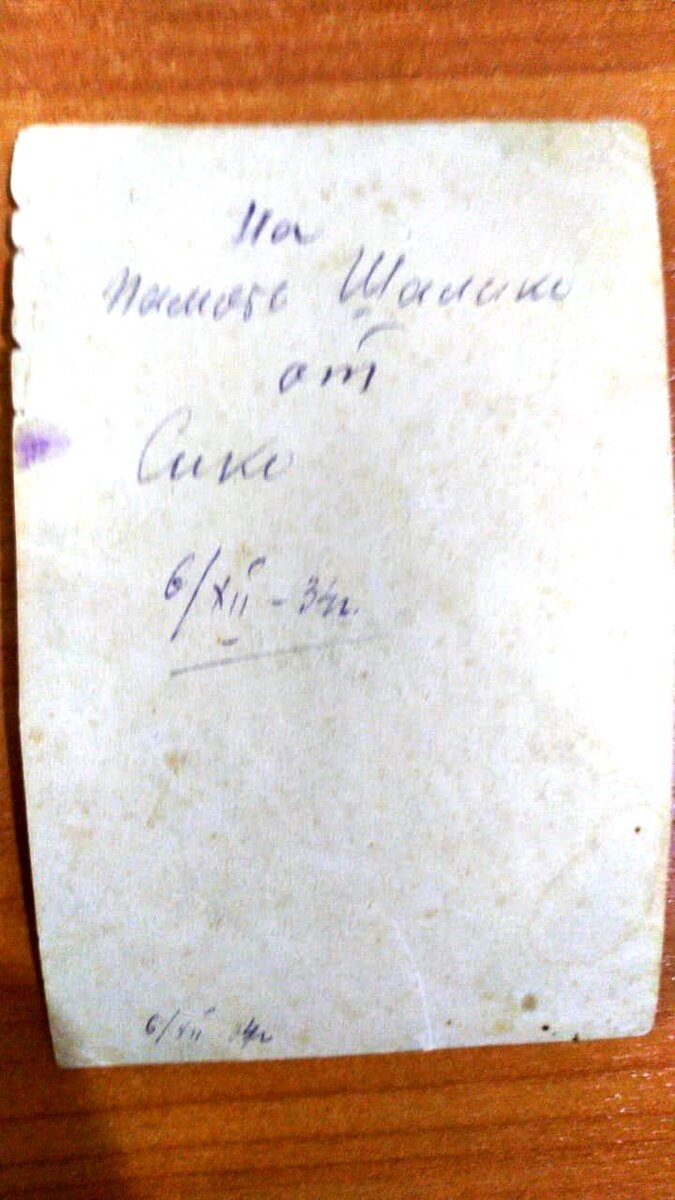 На
память Шалико
от
Сико
6/XII - 34г.
6/XII 34г